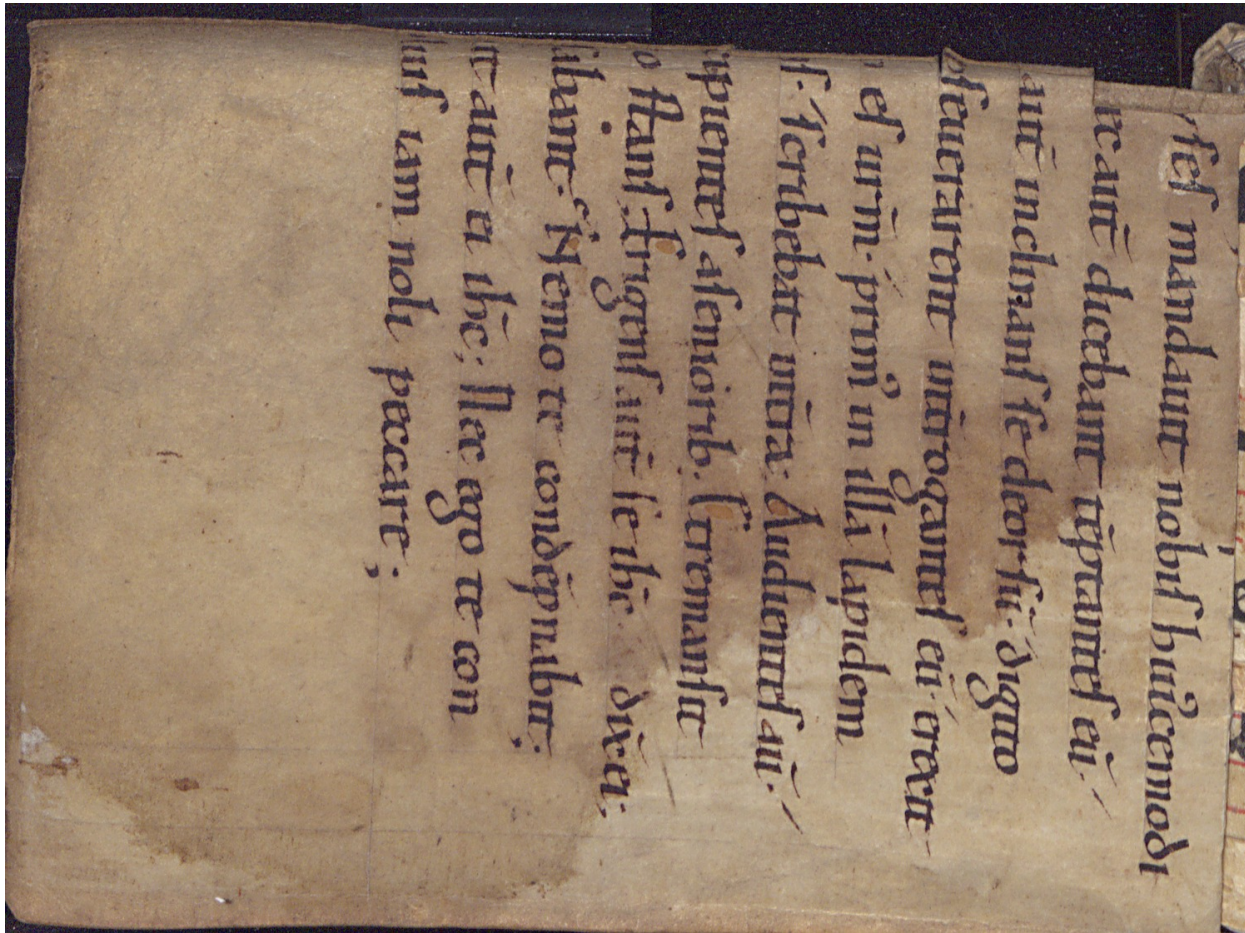 yſeſ mandauit nobiſ hui᷒cemodi
ec aut̄ dicebant te̅ptanteſ eū·/
aut̄ inclinanſ ſe deorſū· digito
oſeuerarent int̄roganteſ eū· erexit
eſ ur̄m· prim᷒ in illā lapidem
ſ· ſcribebat int̄ra· Audienteſ aū·/
ipienteſ aſeniorib· Et remanſit
o ſtanſ· Erigenſ aut̄ ſe ih̄c· dix̄ ei;
abant· Nemo te conde̅pnabit;
it aut̄ ei ih̄c; Nec ego te con
liuſ iam noli peccare;